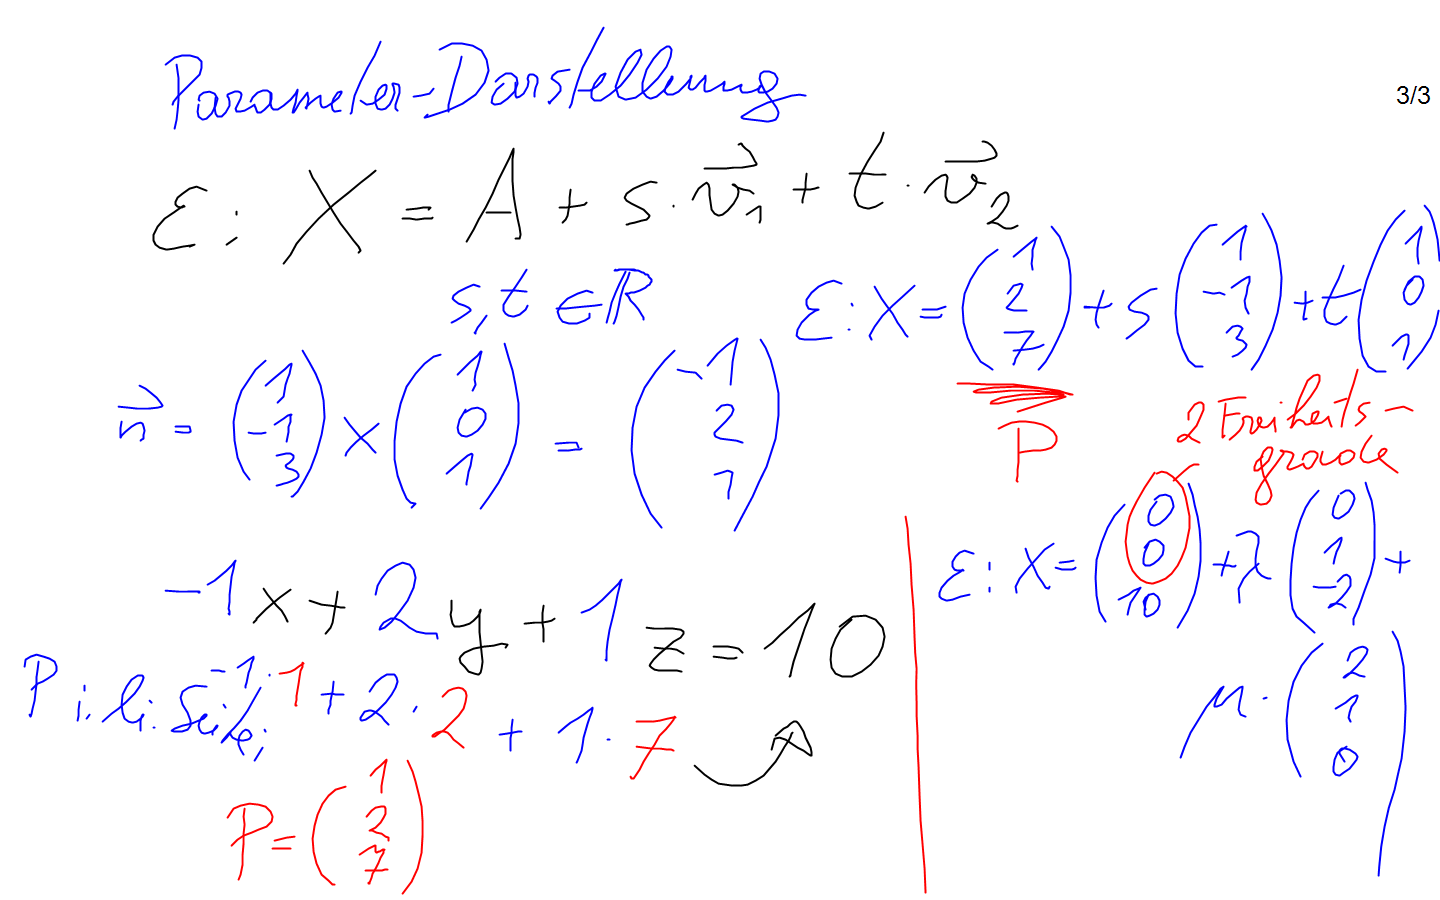 Parameter-Darstellung
3/3
ε: X = A + s·v⃗₁ + t·v⃗₂
s, t ∈ ℝ
ε: X = (1 2 7) + s (1 -1 3) + t (1 0 1)
P
2 Freiheits-
grade
n⃗ = (1 -1 3) × (1 0 1) = (-1 2 1)
-1x + 2y + 1z = 10
P i. li. Seite: -1·1 + 2·2 + 1·7
P = (1 2 7)
ε: X = (0 0 10) + λ (0 1 -2) +
μ· (2 1 0)